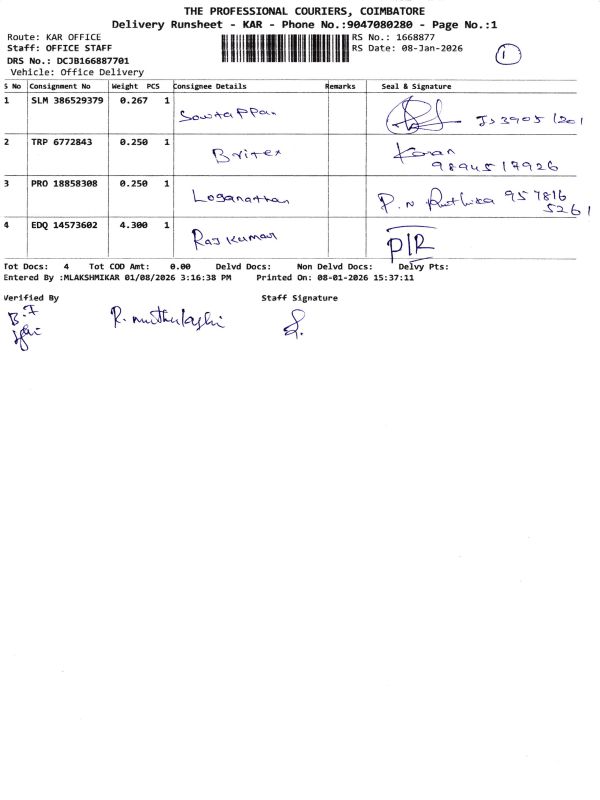 THE PROFESSIONAL COURIERS, COIMBATORE
Delivery Runsheet - KAR - Phone No.:9047080280 - Page No.:1
Route: KAR OFFICE RS No.: 1668877
Staff: OFFICE STAFF RS Date: 08-Jan-2026 1
DRS No.: DCJB166887701
Vehicle: Office Delivery
S No Consignment No Weight PCS Consignee Details Remarks Seal & Signature
1 SLM 386529379 0.267 1
2 TRP 6772843 0.250 1 Britex 9894517926
3 PRO 18858308 0.250 1 Loganathan P.N 957816
5261
4 EDQ 14573602 4.300 1 Raj Kumar P/R
Tot Docs: 4 Tot COD Amt: 0.00 Delvd Docs: Non Delvd Docs: Delvy Pts:
Entered By :MLAKSHMIKAR 01/08/2026 3:16:38 PM Printed On: 08-01-2026 15:37:11
Verified By Staff Signature